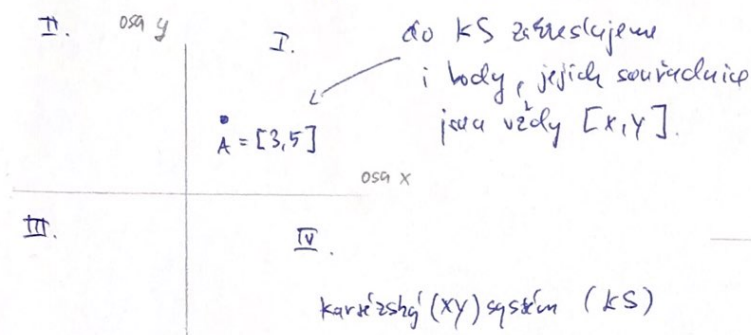 II.
osa y
I.
do KS zakreslujeme
i body, jejich souřadnice
jsou vždy [x,y].
A = [3,5]
osa x
III.
IV.
kartézský (XY) systém (KS)